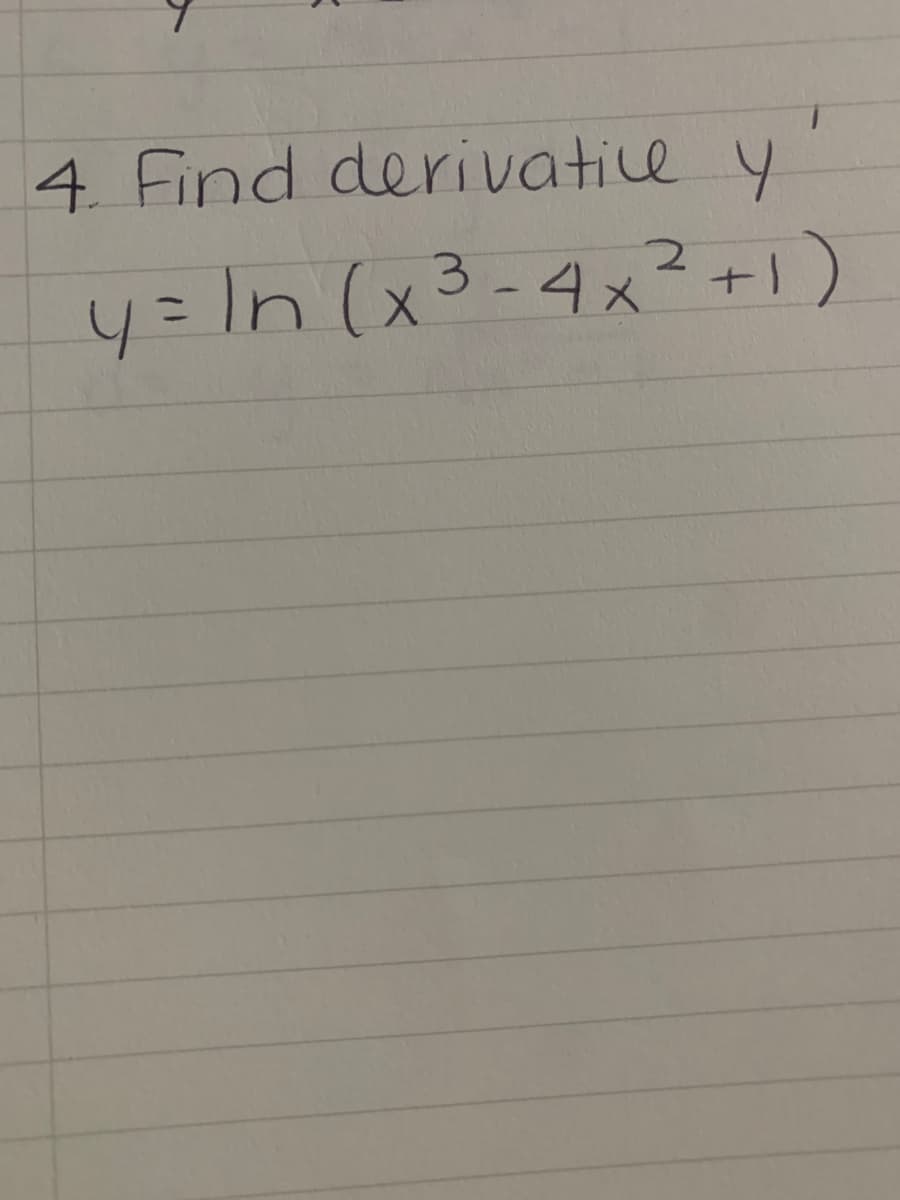 4. Find derivative y'
y = ln (x³ - 4x² + 1)